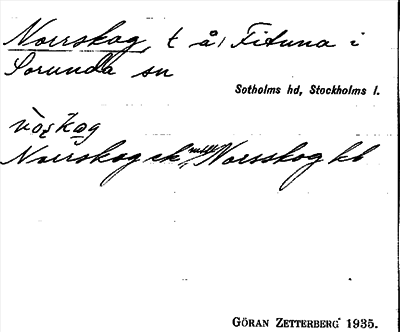 Norrskog, t å, Fituna i
Sorunda sn
Sotholms hd, Stockholms l.
Norrskog ek Norsskog kb
GÖRAN ZETTERBERG 1935.